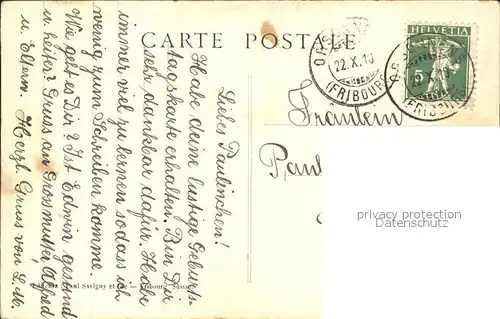 CARTE POSTALE
HELVETIA
22.X.10
(FRIBOURG)
22.X.1
(FRIBOURG)
Fräulein
Liebes Paulinchen!
Habe deine lustige Geburts-
tagskarte erhalten. Bin Dir
sehr dankbar dafür. Habe
immer viel zu lernen sodass ich
wenig zum Schreiben komme.
Wie geht es Dir? Ist Edwin gesund
u. heiter? Gruss an Grossmutter Alfred
u. Eltern. Herzl. Gruss von L. M.
Savigny et Cie — Fribourg Suisse
privacy protection
Datenschutz